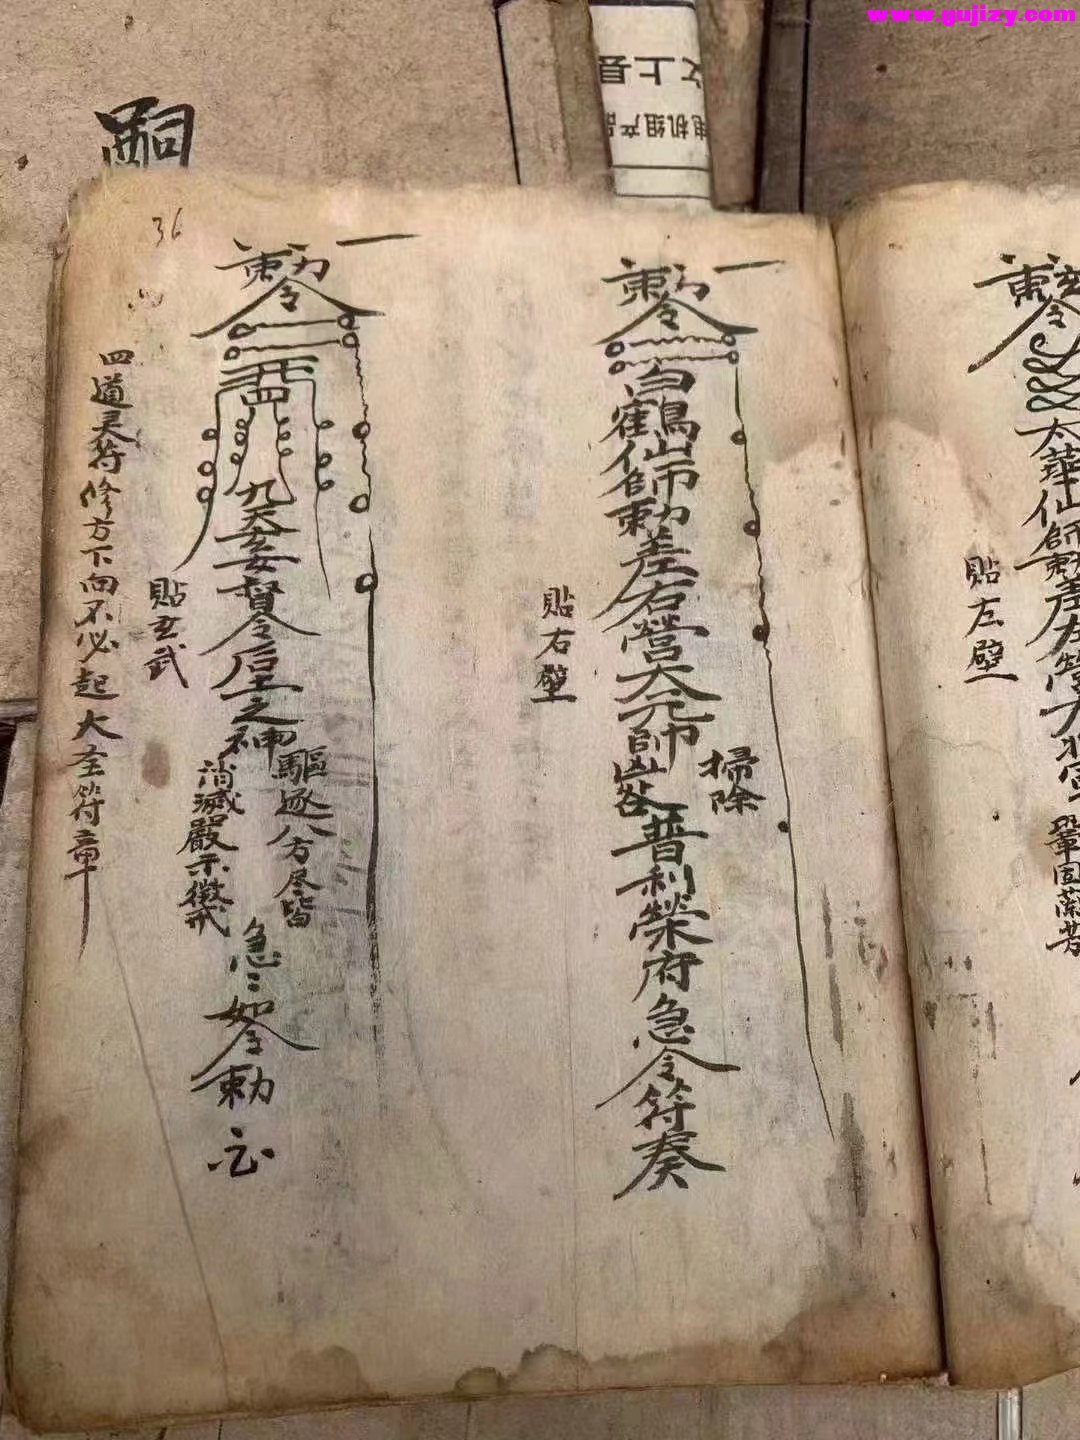 www.gujizy.com
汶上县
电机组产品
嗣
36
敕令
太華仙師敕差左營大將軍
鞏固蘭芳
貼左壁
敕令
白鶴仙師勅差右營大元帥
掃除
普利榮府急令符奏
貼右壁
敕令
九天玄女督令后土之神
驅逐八方尽皆
消滅嚴示懲戒
急〻如令勅
貼玄武
四道灵符修方下向不必起大全符章